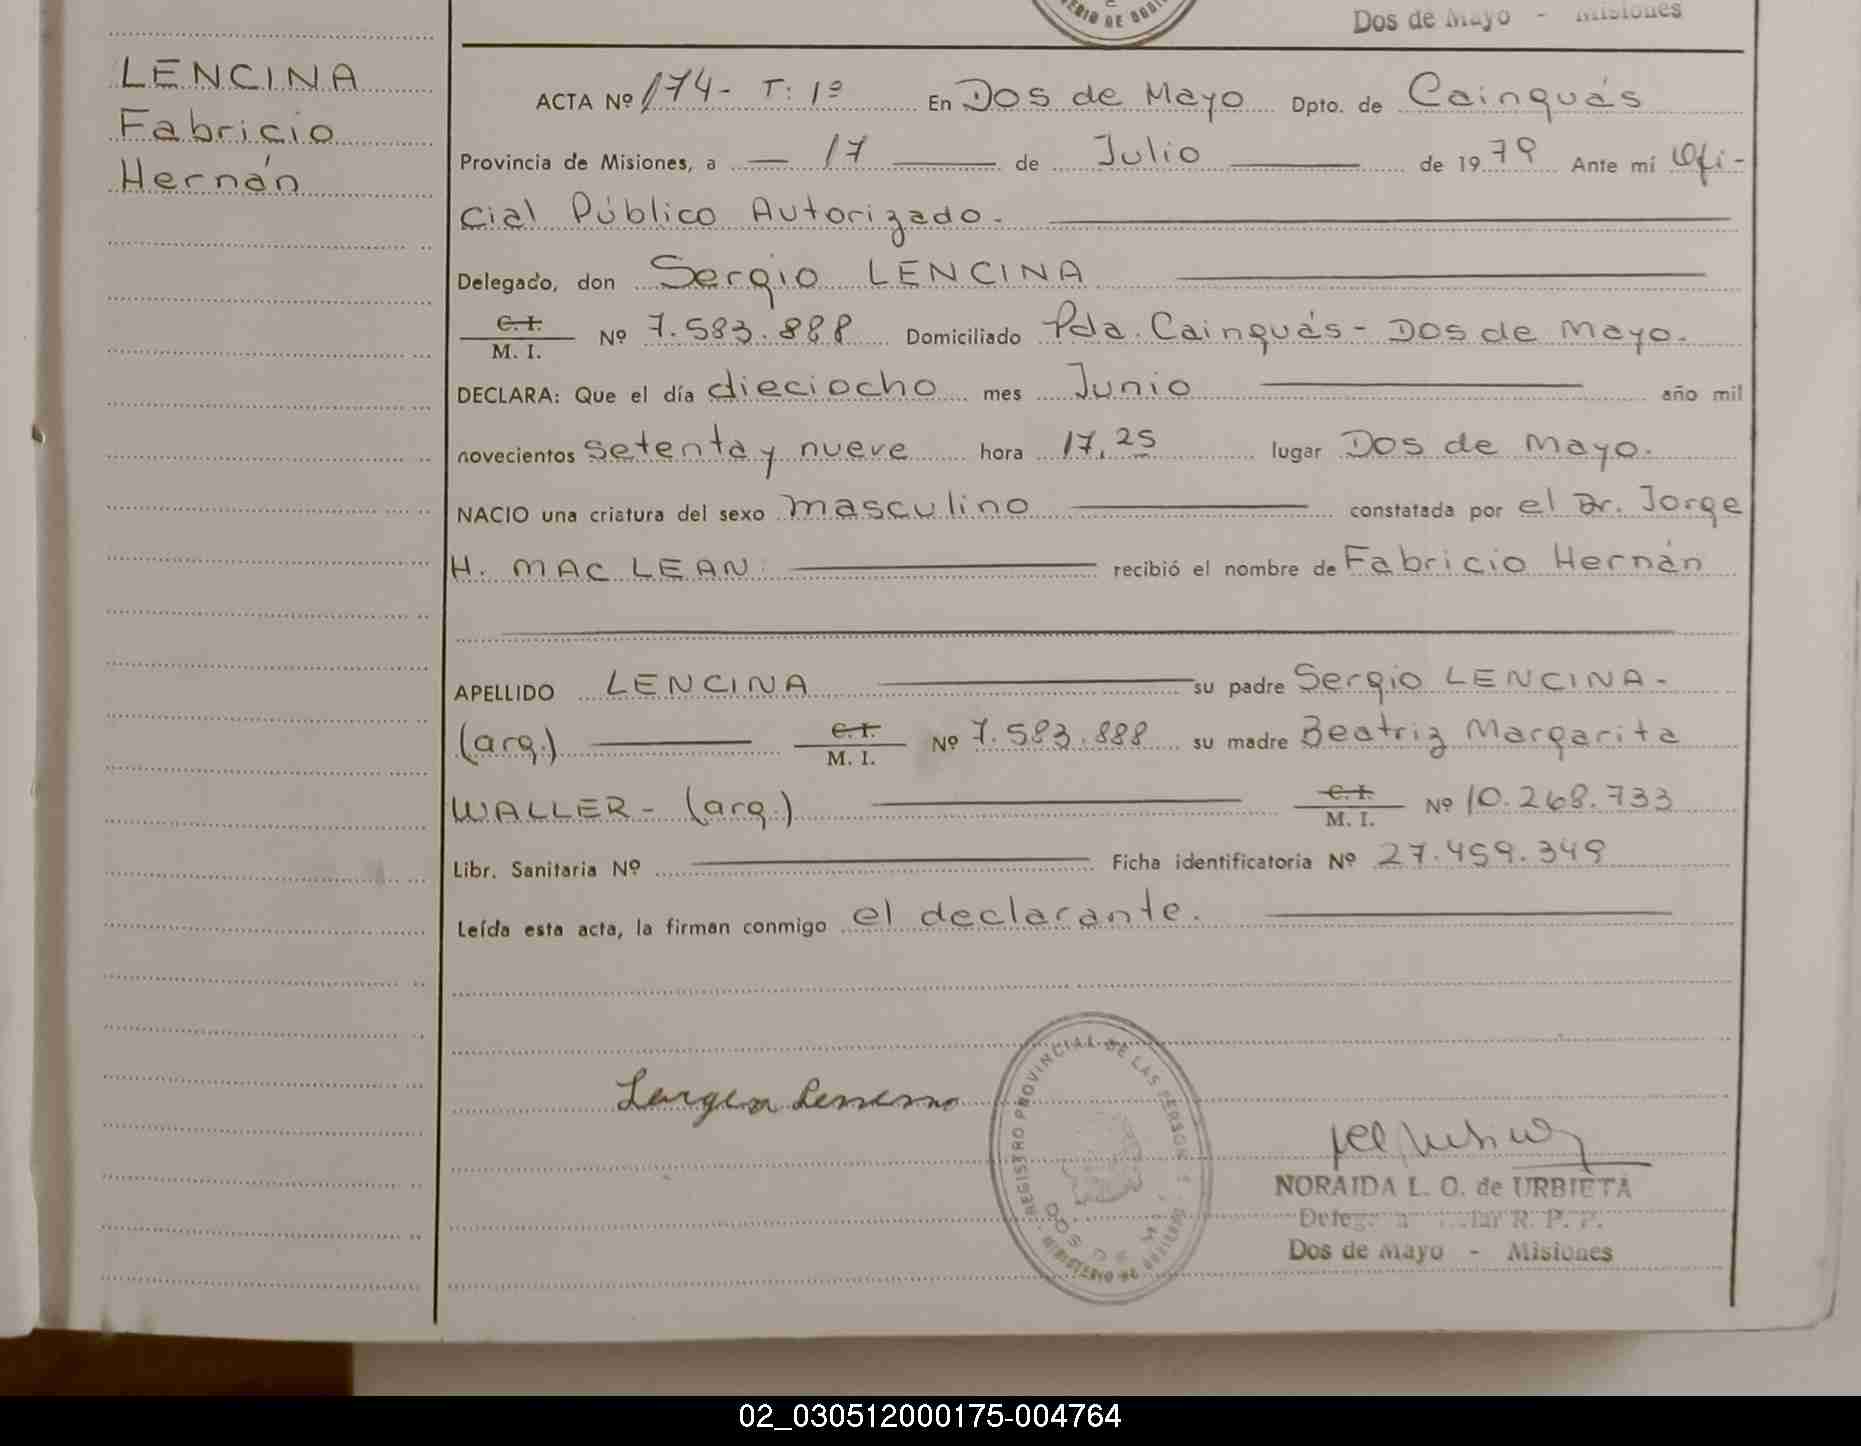 Dos de Mayo - Misiones
LENCINA
Fabricio
Hernán
ACTA Nº 174- T: 1º En Dos de Mayo Dpto. de Cainguás
Provincia de Misiones, a 17 de Julio de 1979 Ante mí Ofi-
cial Público Autorizado.
Delegado, don Sergio LENCINA
C. I.
M. I. Nº 7.583.888 Domiciliado Pda. Cainguás - Dos de Mayo.
DECLARA: Que el día dieciocho mes Junio año mil
novecientos setenta y nueve hora 17,25 lugar Dos de Mayo.
NACIO una criatura del sexo masculino constatada por el Dr. Jorge
H. MAC LEAN recibió el nombre de Fabricio Hernán
APELLIDO LENCINA su padre Sergio LENCINA-
(arg.) C. I. M. I. Nº 7.583.888 su madre Beatriz Margarita
WALLER- (arg.) C. I. M. I. Nº 10.268.733
Libr. Sanitaria Nº Ficha identificatoria Nº 27.459.349
Leída esta acta, la firman conmigo el declarante.
REGISTRO PROVINCIAL DE LAS PERSONAS
MINISTERIO DE GOBIERNO
NORAIDA L. O. de URBIETA
R. P. P.
Dos de Mayo - Misiones
02_030512000175-004764